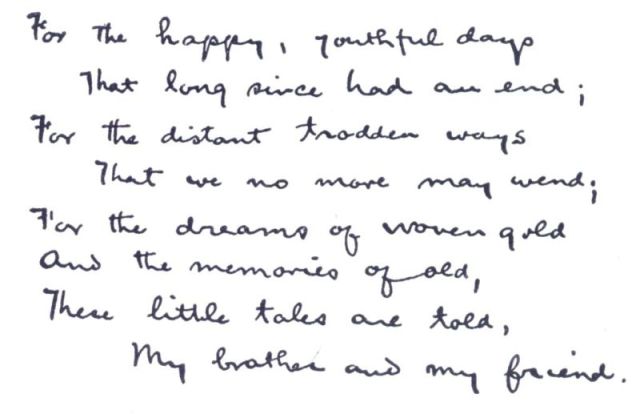 For the happy, youthful days
That long since had an end;
For the distant trodden ways
That we no more may wend;
For the dreams of woven gold
And the memories of old,
These little tales are told,
My brother and my friend.